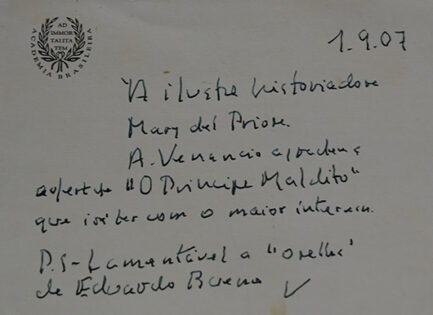 AD
IMMOR
TALITA
TEM
ACADEMIA BRASILEIRA
1.9.07
À ilustre historiadora
Mary del Priore.
A. Venancio agradece
a oferta de "O Príncipe Maldito"
que irá ler com o maior interesse.
P.S - Lamentável a "orelha"
de Eduardo Bueno V